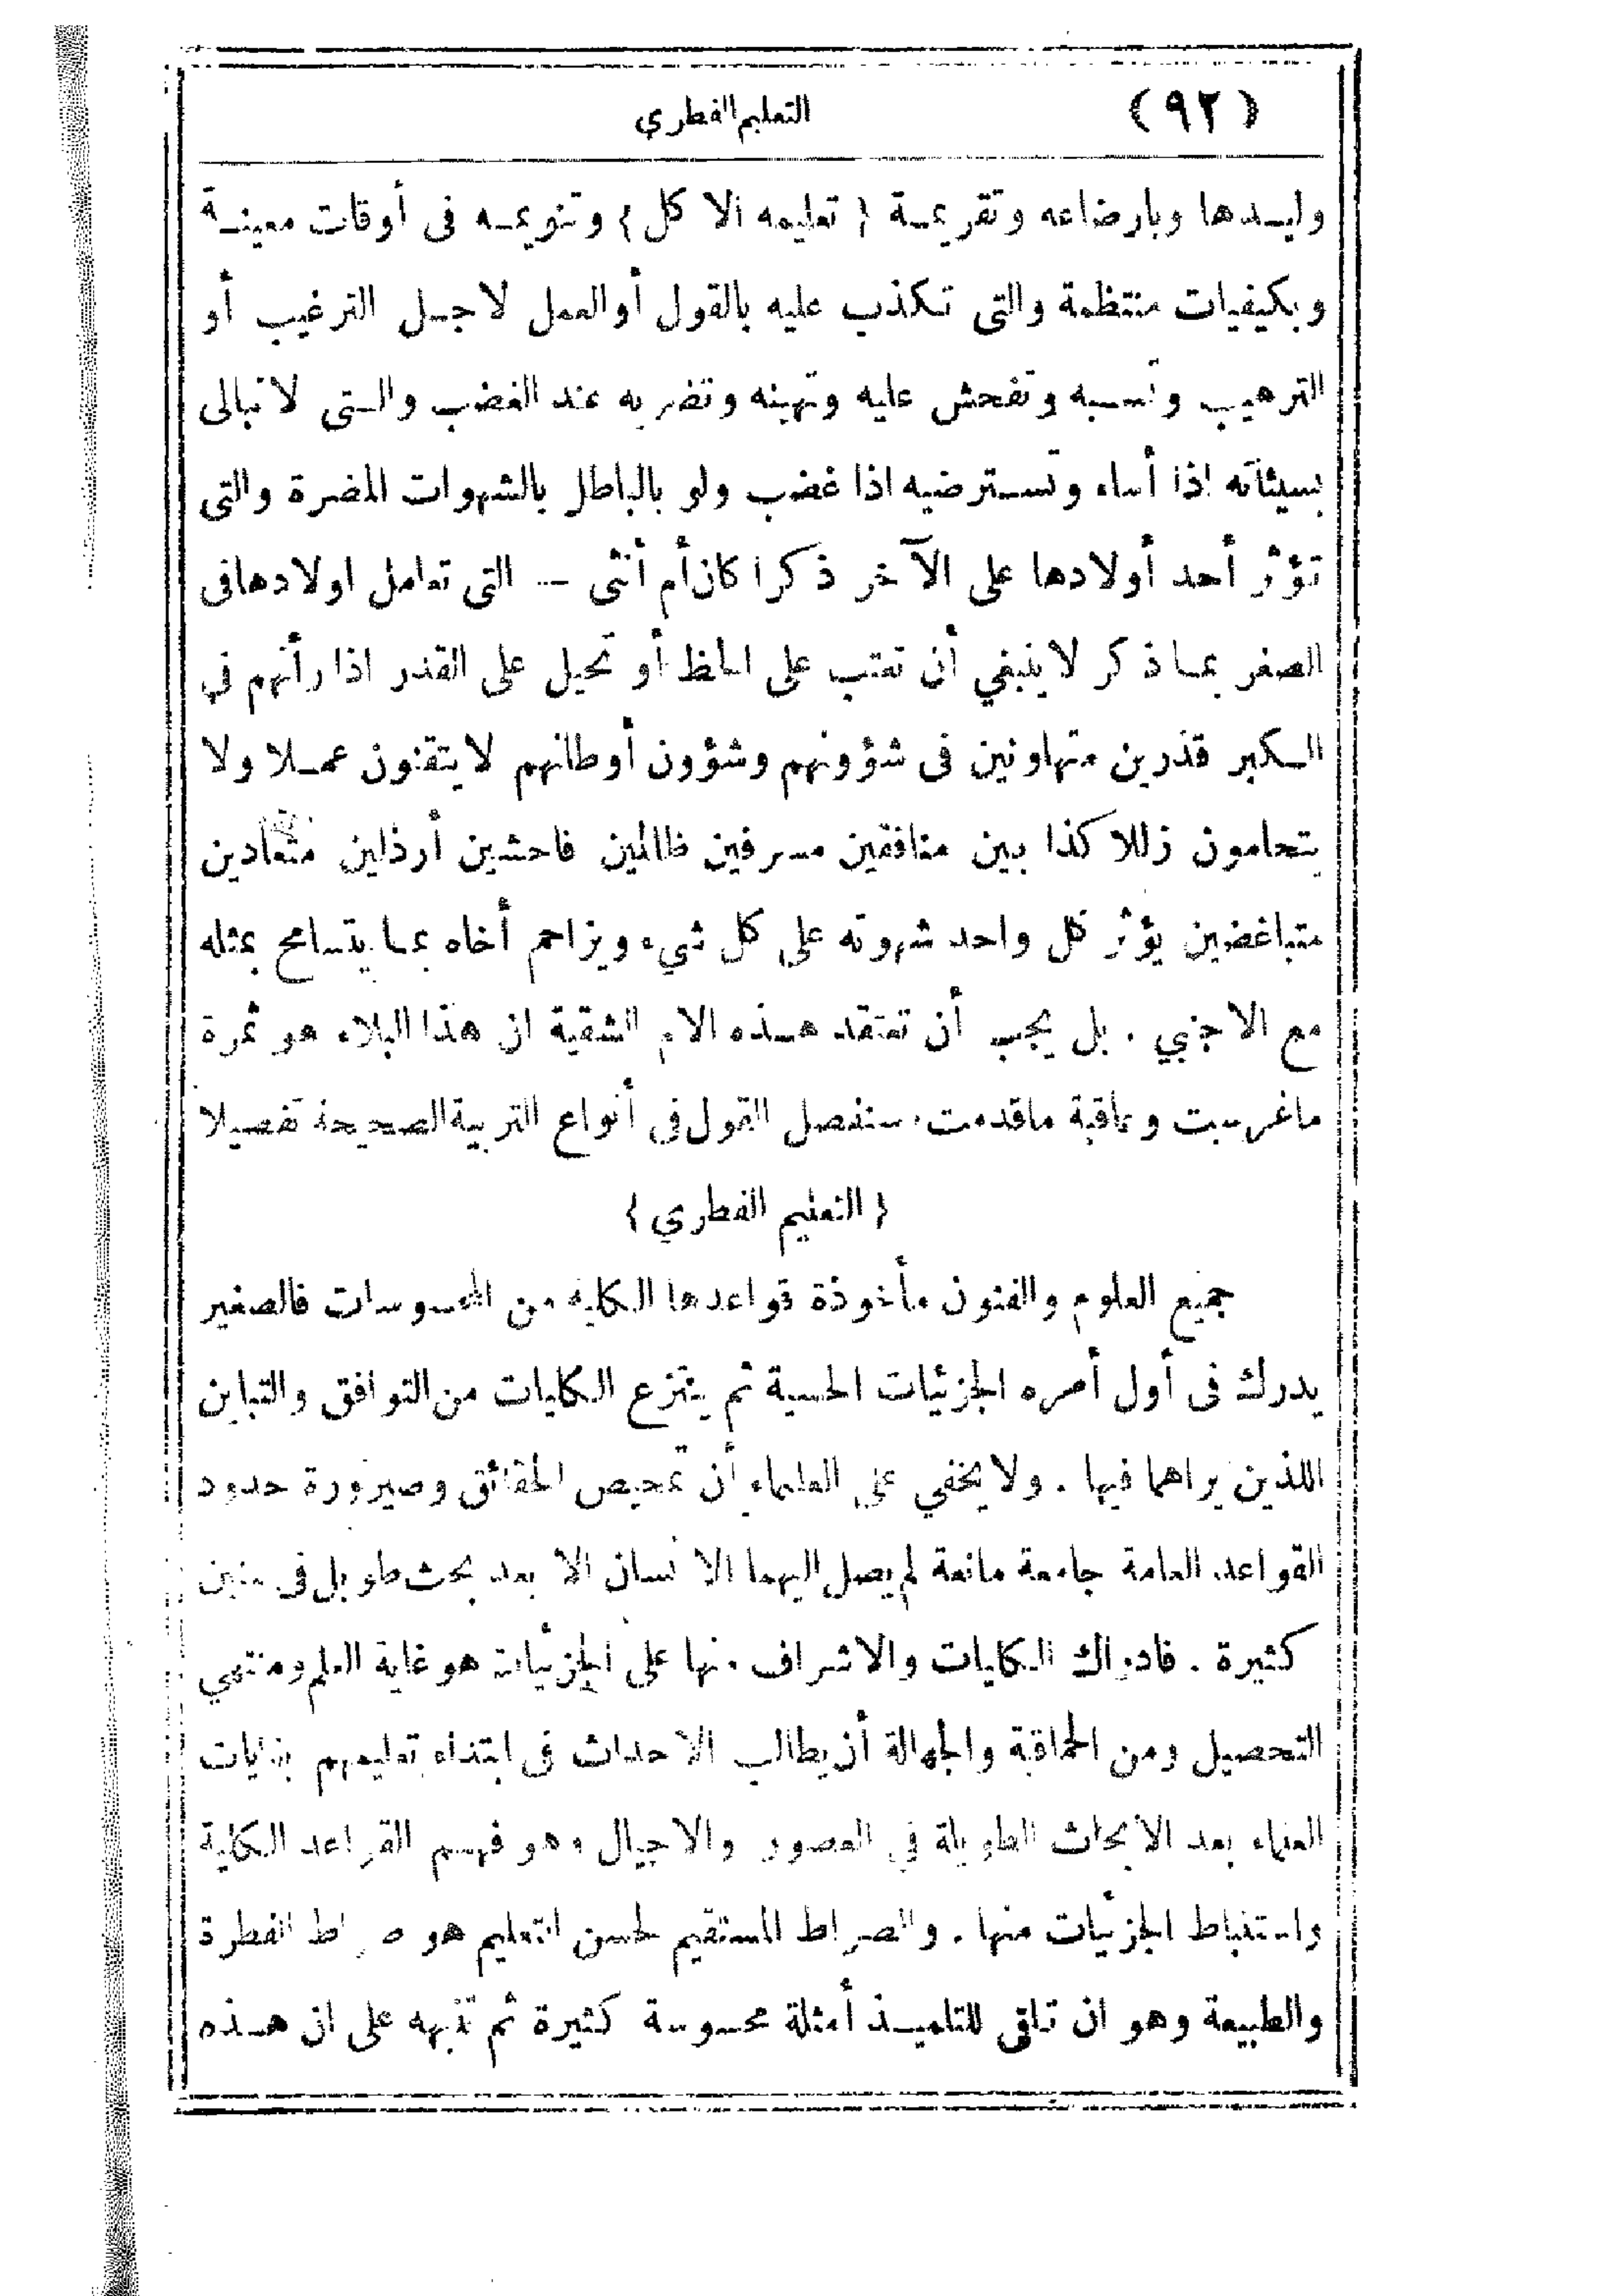 (٩٢) التعليم الفطري
وليدها وبارضاعه وتقريمة { تعليمه الاكل } وتنويمه فى أوقات معينة
وبكيفيات منتظمة والتى تكذب عليه بالقول أو العمل لاجل الترغيب أو
الترهيب وتسبه وتفحش عليه وتهينه وتضربه عند الغضب والتى لا تبالى
بسيئآته اذا أساء وتسترضيه اذا غضب ولو بالباطل بالشهوات المضرة والتى
تؤثر أحد أولادها على الآخر ذكرا كان أم أنثى — التى تعامل اولادها فى
الصغر بما ذكر لا ينبغي أن تعتب على الحظ أو تحيل على القدر اذا رأتهم فى
الكبر قذرين متهاونين فى شؤونهم وشؤون أوطانهم لا يتقنون عملا ولا
يتحامون زللا كذابين منافقين مسرفين ظالمين فاحشين أرذلين متعادين
متباغضين يؤثر كل واحد شهوته على كل شيء ويزاحم أخاه بما يتسامح بمثله
مع الاجنبي . بل يجب أن تعتقد هذه الام الشقية ان هذا البلاء هو ثمرة
ما غرست وعاقبة ما قدمت . سنفصل القول فى أنواع التربية الصحيحة تفصيلا
{ التعليم الفطري }
جميع العلوم والفنون مأخوذة قواعدها الكلية من المحسوسات فالصغير
يدرك فى أول أمره الجزئيات الحسية ثم ينتزع الكليات من التوافق والتباين
اللذين يراهما فيها . ولا يخفي على العلماء أن تمحيص الحقائق وصيرورة حدود
القواعد العامة جامعة مانعة لم يصل اليهما الانسان الا بعد بحث طويل فى سنين
كثيرة . فادراك الكليات والاشراف منها على الجزئيات هو غاية العلم ومنتهي
التحصيل ومن الحماقة والجهالة أن يطالب الاحداث فى ابتداء تعليمهم بغايات
العلماء بعد الابحاث الطويلة في العصور والاجيال وهو فهم القواعد الكلية
واستنباط الجزئيات منها . والصراط المستقيم لحسن التعليم هو صراط الفطرة
والطبيعة وهو ان تلقى للتلميذ أمثلة محسوسة كثيرة ثم تنبهه على ان هذه